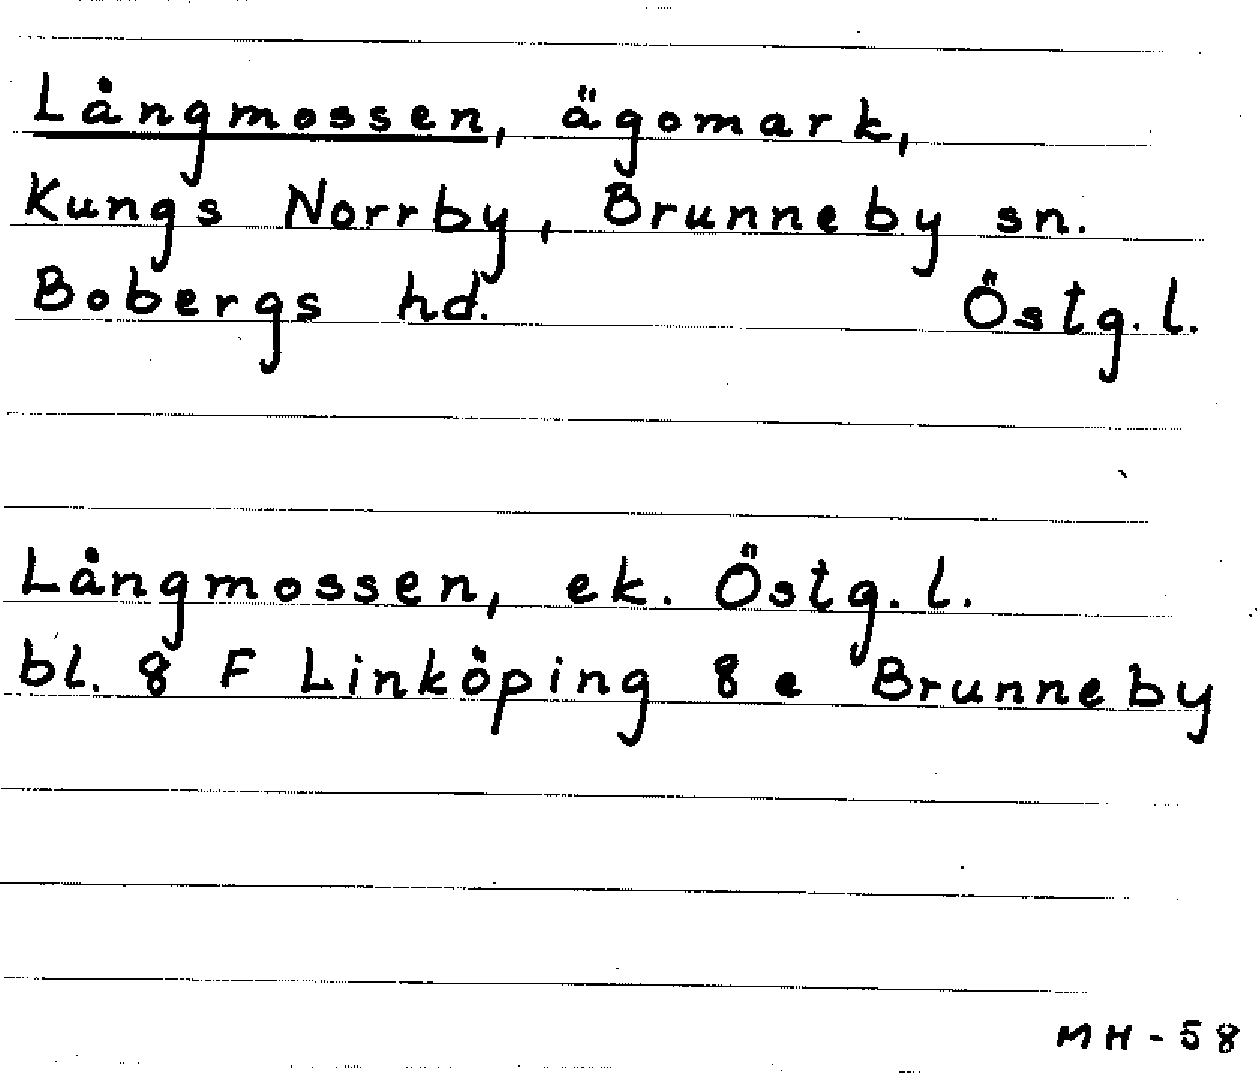 Långmossen, ägomark,
Kungs Norrby, Brunneby sn.
Bobergs hd. Östg. l.
Långmossen, ek. Östg. l.
bl. 8 F Linköping 8 e Brunneby
MH-58